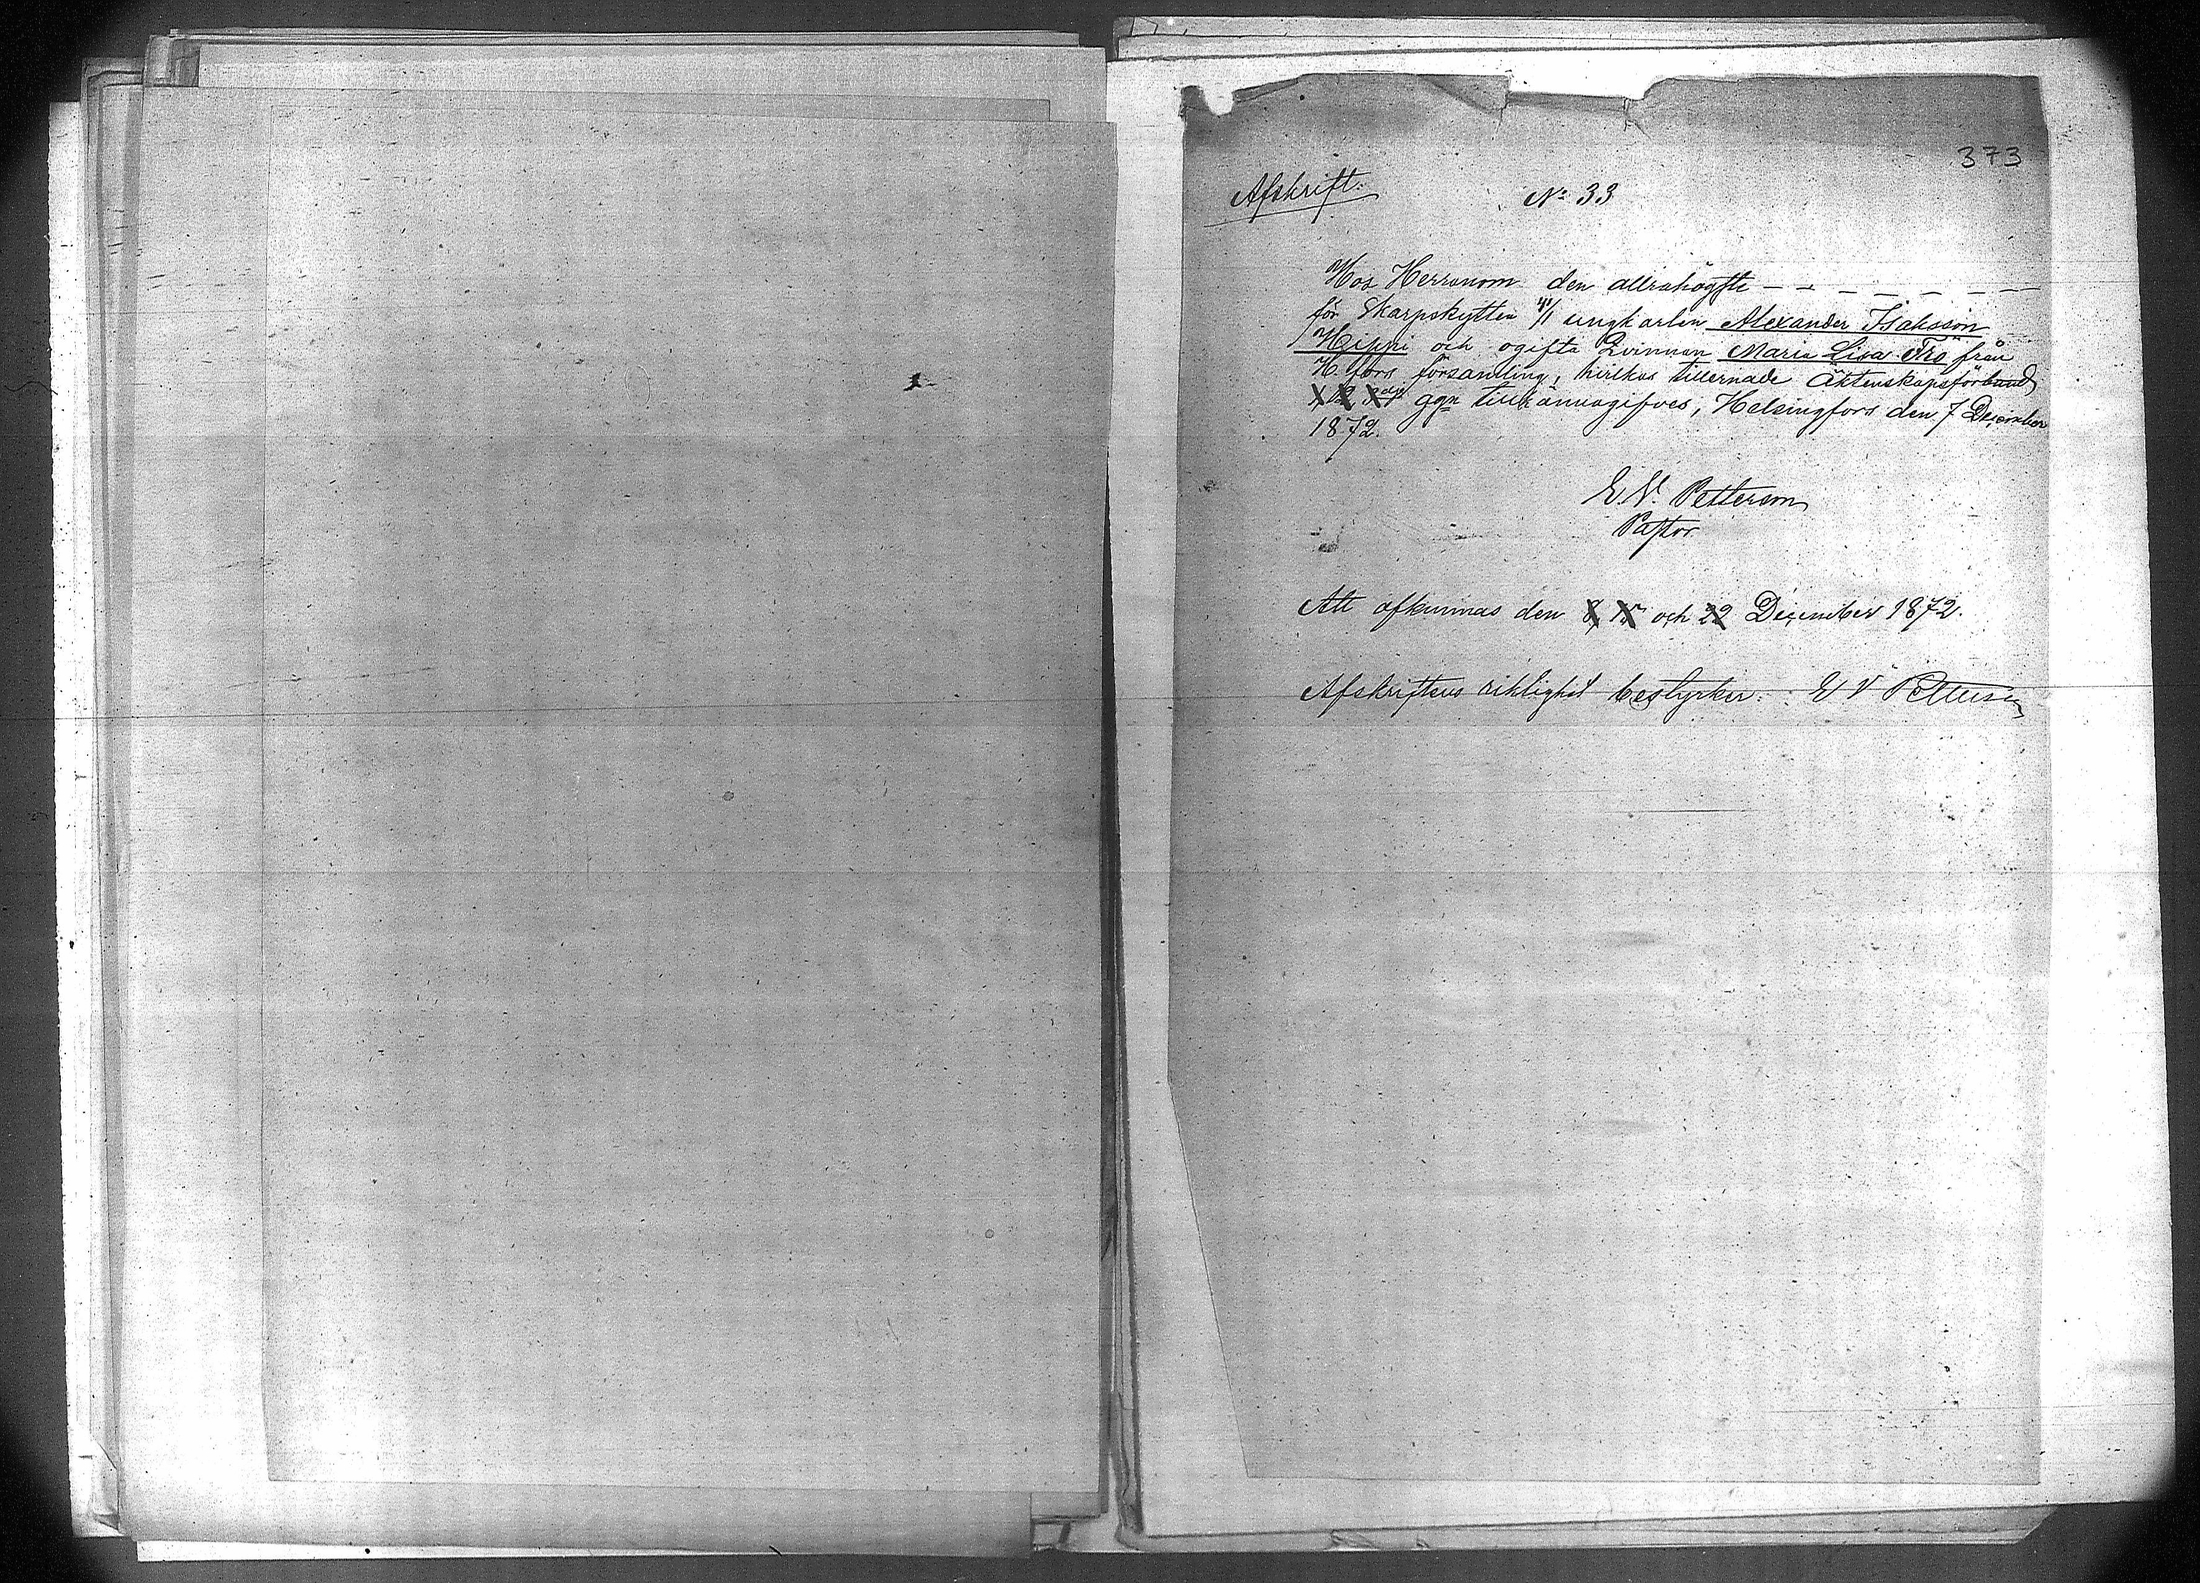 373
Afskrift.
No 33
Hos Herranom den allrahögste – – – – – – –
för Skarpskytten 41/1 ungkarlen Alexander Isaksson
Hippi och ogifta Qvinnan Maria Lisa Fro från
H.fors församling, hvilkas tillernade Äktenskapsförbund
ggn tillkännagifves; Helsingfors den 7 December
1872.
E.V. Petterson
Pastor
Att afkunnas den 8 15 och 22 December 1872.
Afskriftens riktighet bestyrker: E V Petterson